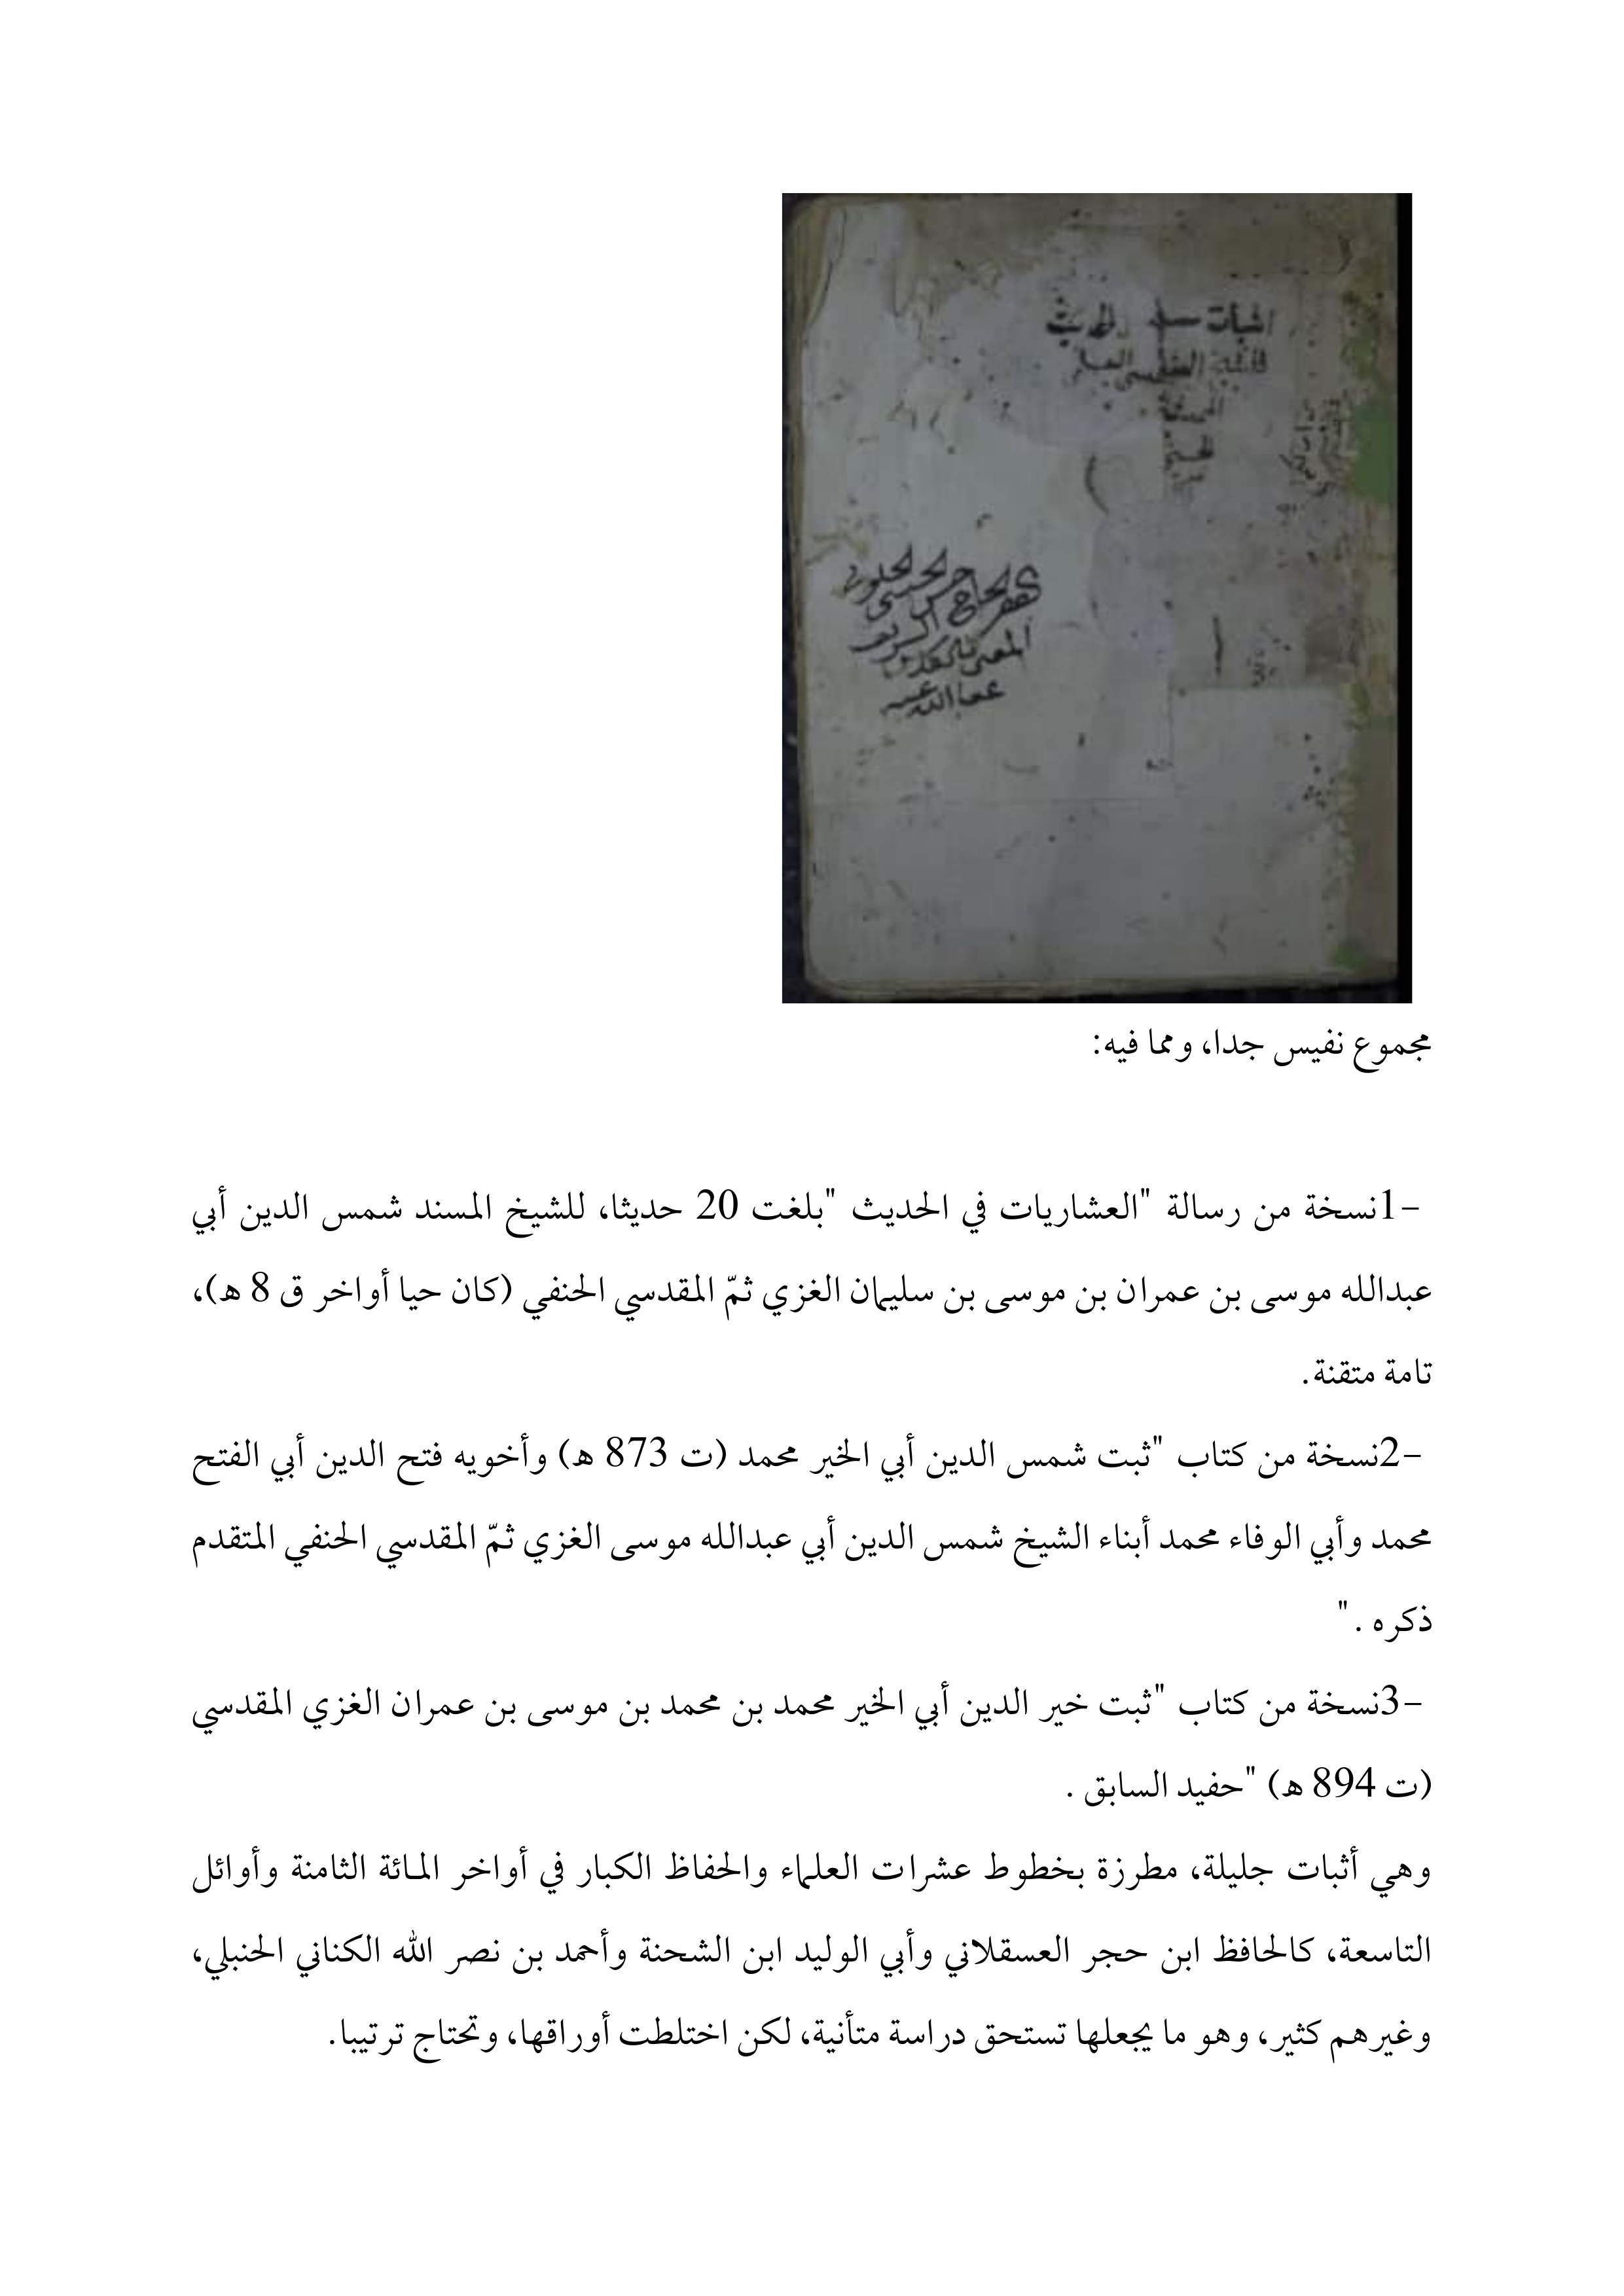 عفا الله عنه
مجموع نفيس جدا، ومما فيه:
-1نسخة من رسالة "العشاريات في الحديث "بلغت 20 حديثا، للشيخ المسند شمس الدين أبي
عبدالله موسى بن عمران بن موسى بن سليمان الغزي ثمّ المقدسي الحنفي (كان حيا أواخر ق 8 هـ)،
تامة متقنة.
-2نسخة من كتاب "ثبت شمس الدين أبي الخير محمد (ت 873 هـ) وأخويه فتح الدين أبي الفتح
محمد وأبي الوفاء محمد أبناء الشيخ شمس الدين أبي عبدالله موسى الغزي ثمّ المقدسي الحنفي المتقدم
ذكره ."
-3نسخة من كتاب "ثبت خير الدين أبي الخير محمد بن محمد بن موسى بن عمران الغزي المقدسي
(ت 894 هـ) "حفيد السابق .
وهي أثبات جليلة، مطرزة بخطوط عشرات العلماء والحفاظ الكبار في أواخر المائة الثامنة وأوائل
التاسعة، كالحافظ ابن حجر العسقلاني وأبي الوليد ابن الشحنة وأحمد بن نصر الله الكناني الحنبلي،
وغيرهم كثير، وهو ما يجعلها تستحق دراسة متأنية، لكن اختلطت أوراقها، وتحتاج ترتيبا.